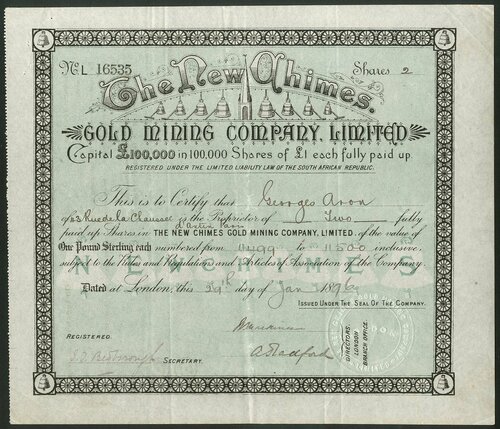 No. L 16535 Shares 2
The New Chimes.
GOLD MINING COMPANY, LIMITED
Capital £100,000 in 100,000 Shares of £1 each fully paid up
REGISTERED UNDER THE LIMITED LIABILITY LAW OF THE SOUTH AFRICAN REPUBLIC.
This is to Certify that Georges Aron
of 53 Rue de la Chaussee is the Proprietor of Two fully
d'Antin Paris
paid up Shares in THE NEW CHIMES GOLD MINING COMPANY, LIMITED, of the value of
One Pound Sterling each numbered from 11499 to 11500 inclusive,
subject to the Rules and Regulations and Articles of Association of the Company.
NEW CHIMES
Dated at London, this 29th day of Jan 1896
ISSUED UNDER THE SEAL OF THE COMPANY.
REGISTERED.
SECRETARY.
A. Radford
DIRECTORS,
LONDON
BRANCH OFFICE.